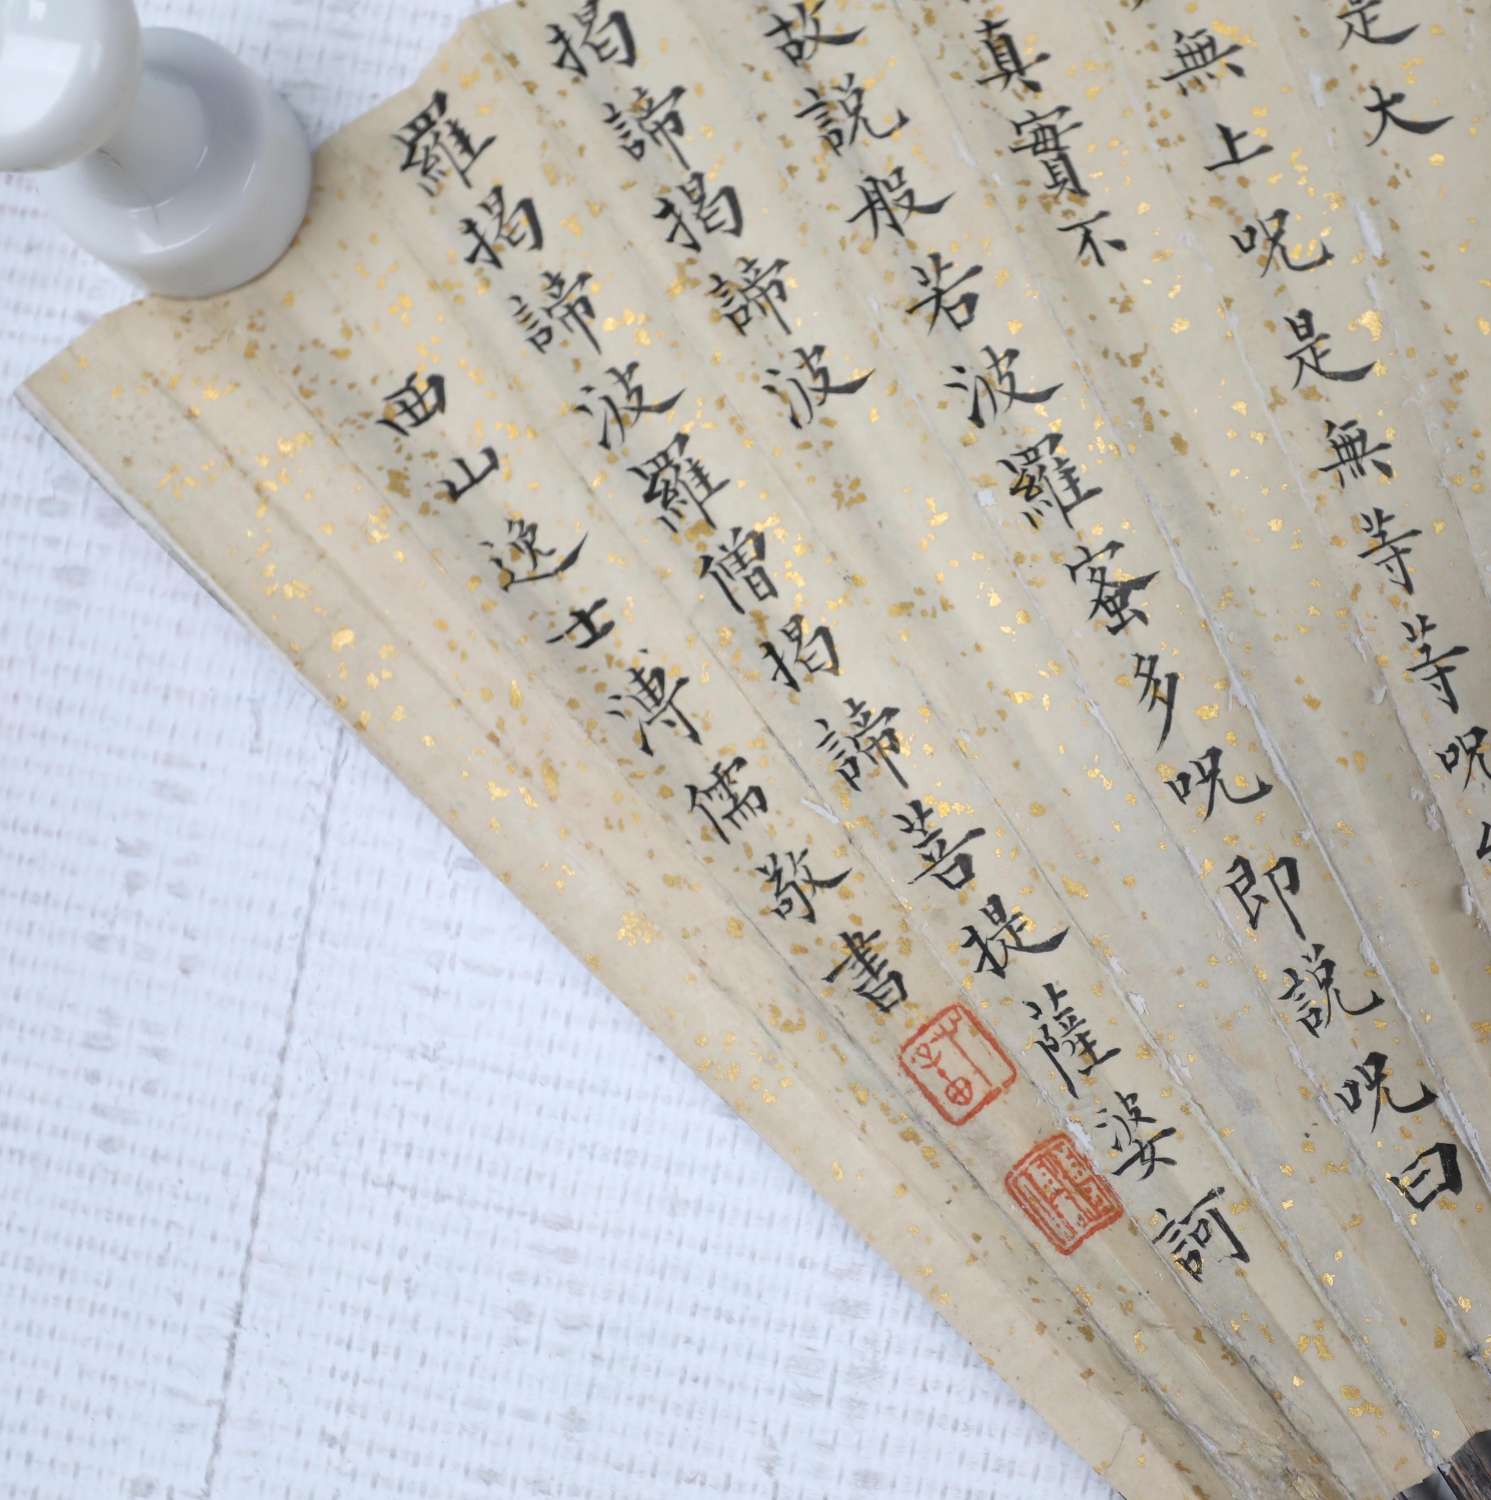 是大
無上呪是無等等呪
真實不
故說般若波羅蜜多呪即說呪曰
揭諦揭諦波
羅揭諦波羅僧揭諦菩提薩婆訶
西山逸士溥儒敬書